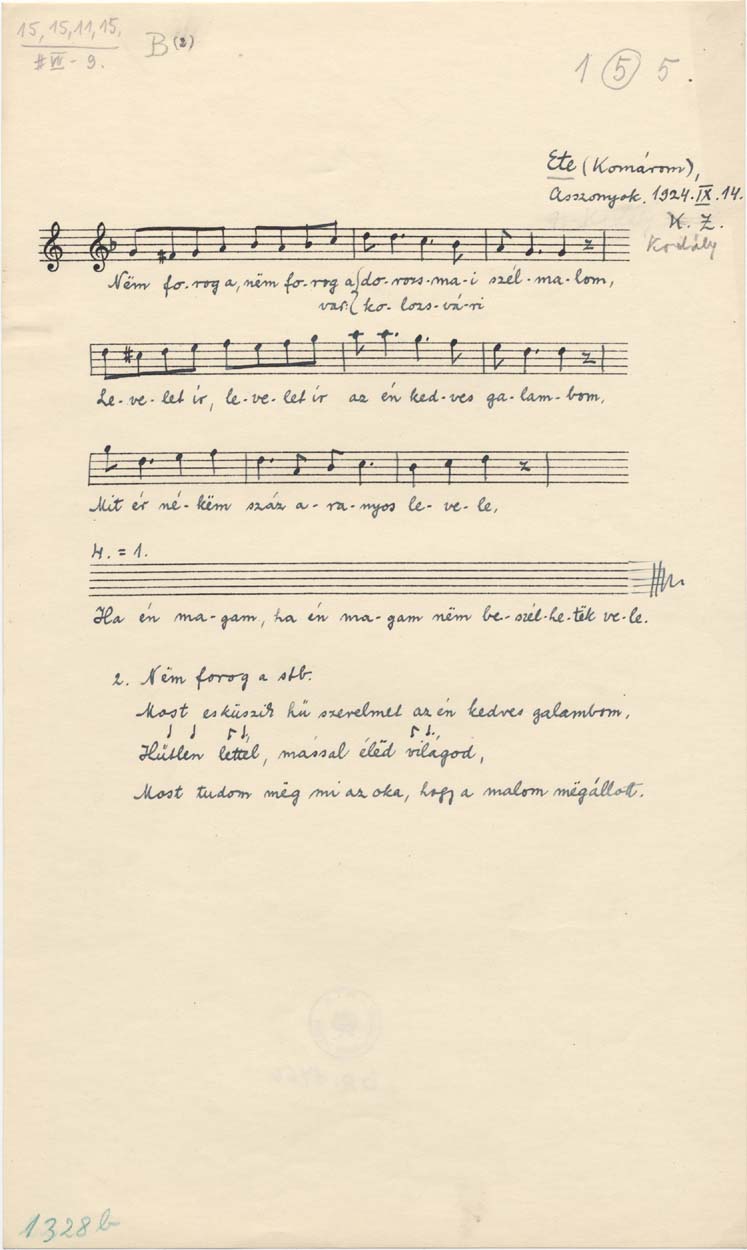 15, 15, 11, 15.
#VII - 9.
B(2)
1 5 5
Ete (Komárom),
Asszonyok. 1924.IX.14.
K. Z.
Kodály
Nëm fo-rog a, nëm fo-rog a do-rozs-ma-i szél-ma-lom,
var: ko-lozs-vá-ri
Le-ve-let ír, le-ve-let ír az én ked-ves ga-lam-bom,
Mit ér né-këm száz a-ra-nyos le-ve-le,
4. = 1.
Ha én ma-gam, ha én ma-gam nëm be-szél-he-tëk ve-le.
2. Nëm forog a stb.
Most esküszik hű szerelmet az én kedves galambom,
Hűtlen lettél, mással élëd világod,
Most tudom mëg mi az oka, hogy a malom mëgállott.
1328b